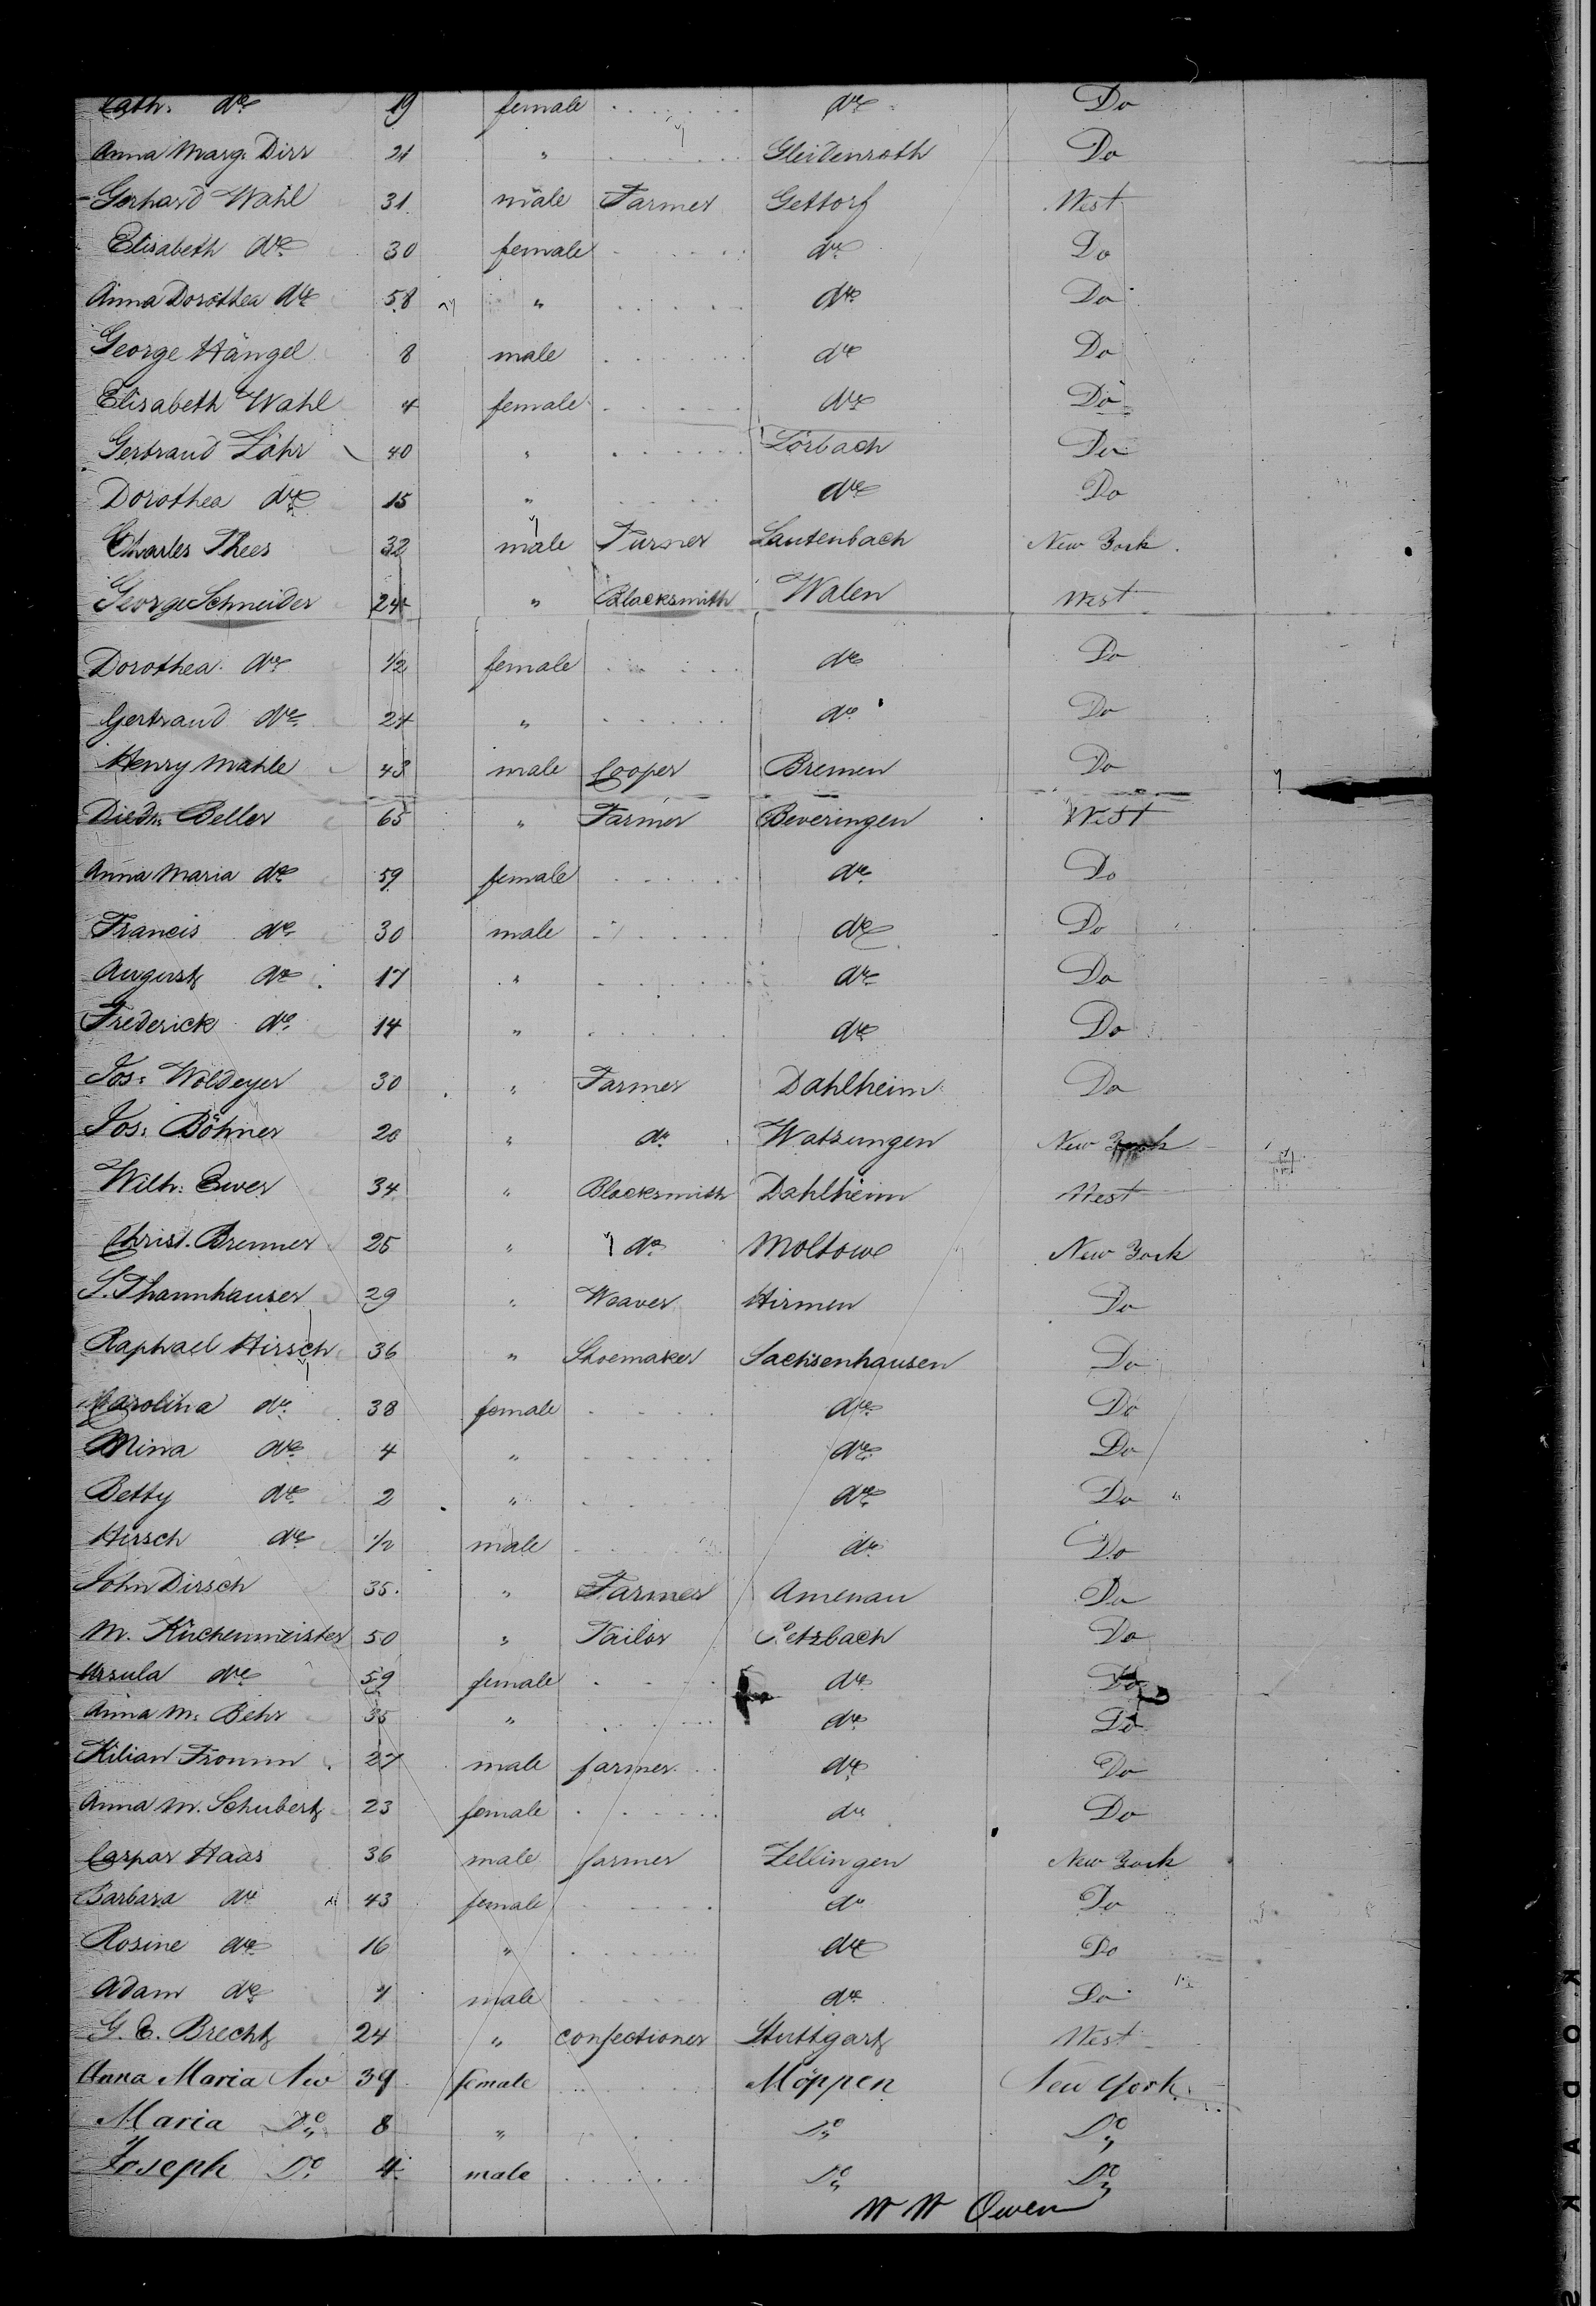 Cath. do 19 female do Do
Anna Marg. Dirr 21 " Gleidenroth Do
Gerhard Wahl 31 male Farmer Gettorf West
Elisabeth do 30 female do Do
Anna Dorothea do 58 " do Do
George Hängel 8 male do Do
Elisabeth Wahl 4 female do Do
Gertraud Löhr 40 " Lörbach Do
Dorothea do 15 " do Do
Charles Thees 32 male Turner Lautenbach New York
George Schneider 24 " Blacksmith Walen West
Dorothea do 1/2 female do Do
Gertraud do 24 " do Do
Henry Mahle 43 male Cooper Bremen Do
Diedr. Beller 65 " Farmer Beveringen West
Anna Maria do 59 female do Do
Francis do 30 male do Do
August do 17 " do Do
Frederick do 14 " do Do
Jos: Woldeyer 30 " Farmer Dahlheim Do
Jos: Böhner 20 " do Watzungen New York
Wilh: Ewer 34 " Blacksmith Dahlheim West
Christ. Brenner 25 " do Moltowe New York
S. Thannhauser 29 " Weaver Hirmen Do
Raphael Hirsch 36 " Shoemaker Sachsenhausen Do
Carolina do 38 female do Do
Mina do 4 " do Do
Betty do 2 " do Do
Hirsch do 1/2 male do Do
John Dirsch 35 " Farmer Amenau Do
M. Küchenmeister 50 " Tailor Retzbach Do
Ursula do 59 female do Do
Anna M. Behr 35 " do Do
Kilian Fromm 27 male farmer do Do
Anna M. Schubert 23 female do Do
Caspar Haas 36 male farmer Zellingen New York
Barbara do 43 female do Do
Rosine do 16 " do Do
Adam do 7 male do Do
G. E. Brecht 24 " confectioner Stuttgart West
Anna Maria 39 female Möppen New York
Maria Do 8 " Do Do
Joseph Do 4 male Do Do
W W Owen
KODAK S